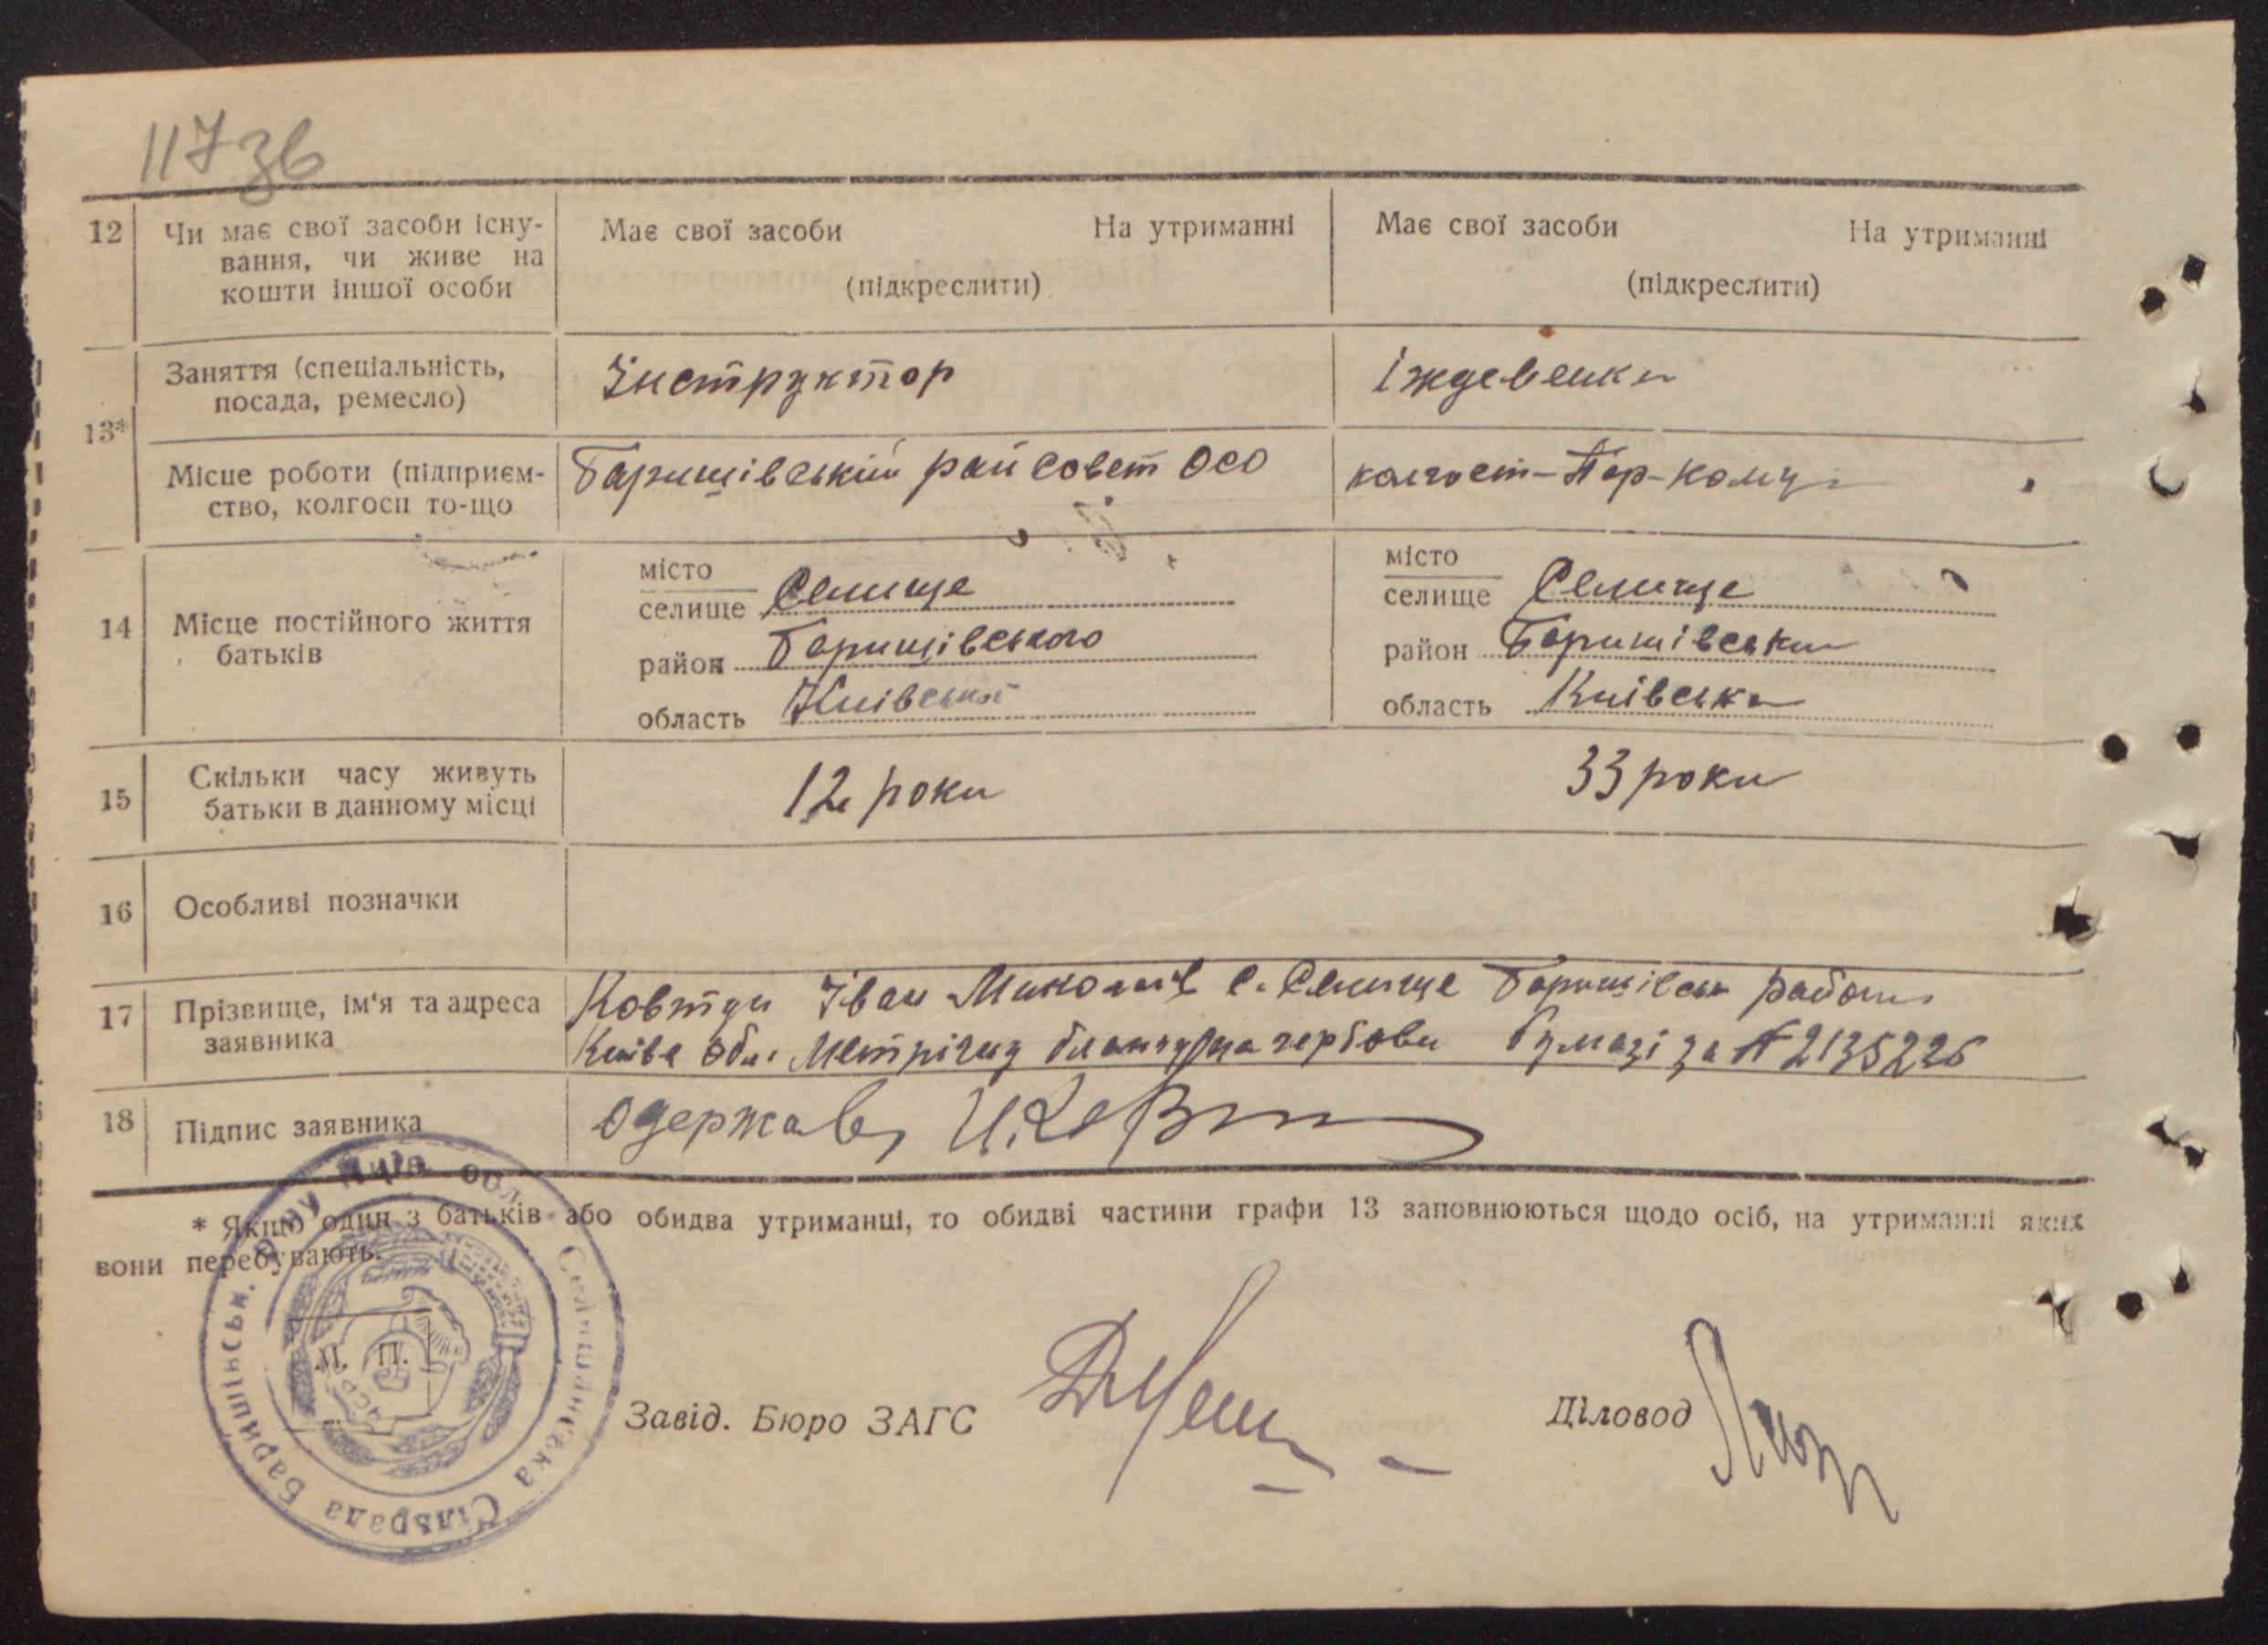 117 зв
12 Чи має свої засоби існу-
вання, чи живе на
кошти іншої особи
Має свої засоби На утриманні
(підкреслити)
Має свої засоби На утриманні
(підкреслити)
13*
Заняття (спеціальність,
посада, ремесло)
Інструктор
Іждевенка
Місце роботи (підприєм-
ство, колгосп то-що
Баришівський рай совет ОСО
14 Місце постійного життя
батьків
місто
селище Селище
район Баришівського
область Київської
місто
селище Селище
район Баришівськи
область Київська
15 Скільки часу живуть
батьки в данному місці
12 роки
33 роки
16 Особливі позначки
17 Прізвище, ім'я та адреса
заявника
Ковтун Іван Миколаїв с. Селище Баришівськ района
Київс обл. Метрічну бланку на гербови бумазі за № 2135226
18 Підпис заявника
одержав,
* Якщо один з батьків або обидва утриманці, то обидві частини графи 13 заповнюються щодо осіб, на утриманні яких
вони перебувають.
М. П.
Селищанська Сільрада Баришівськ. р-ну Київ. обл.
Завід. Бюро ЗАГС
Діловод